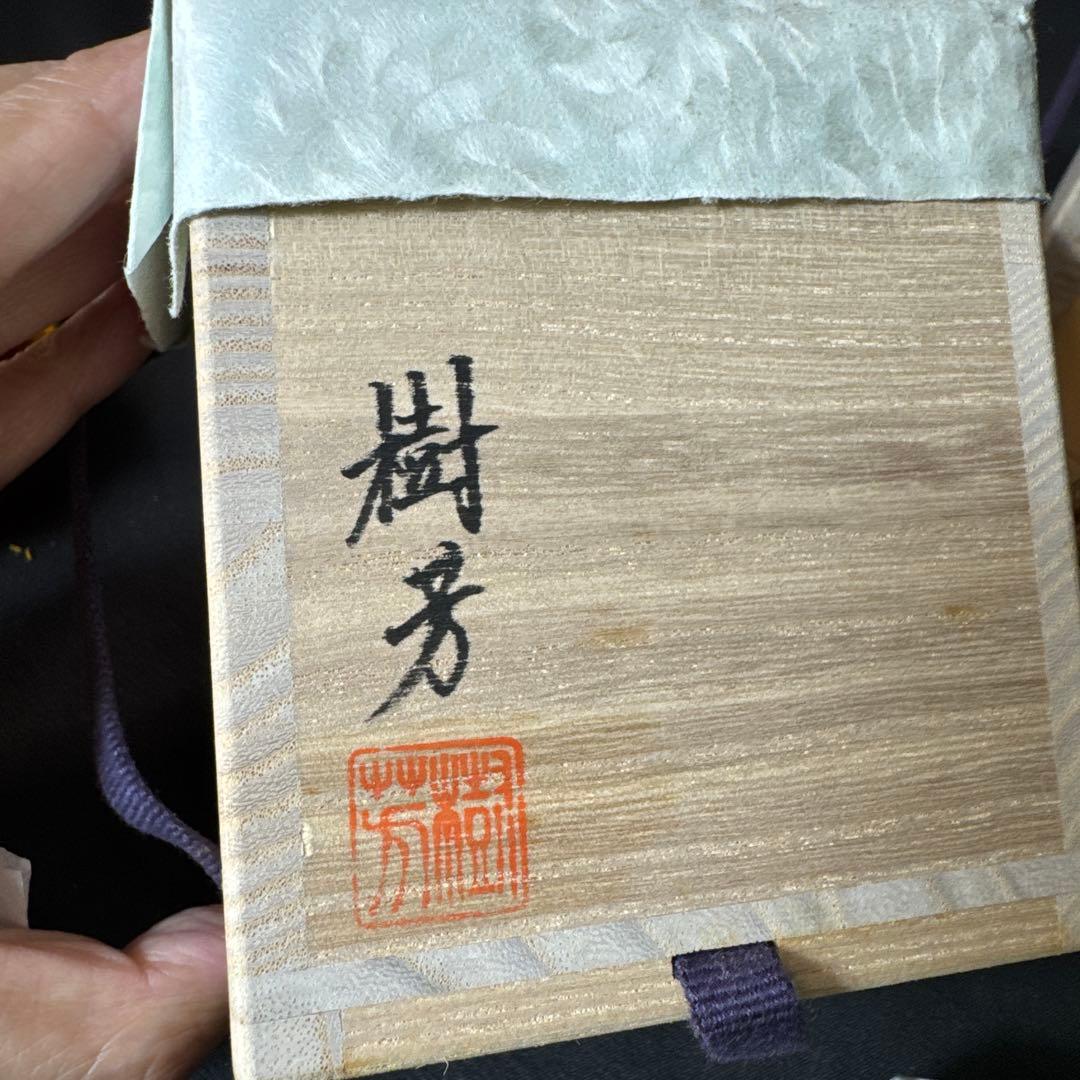 樹芳
樹芳